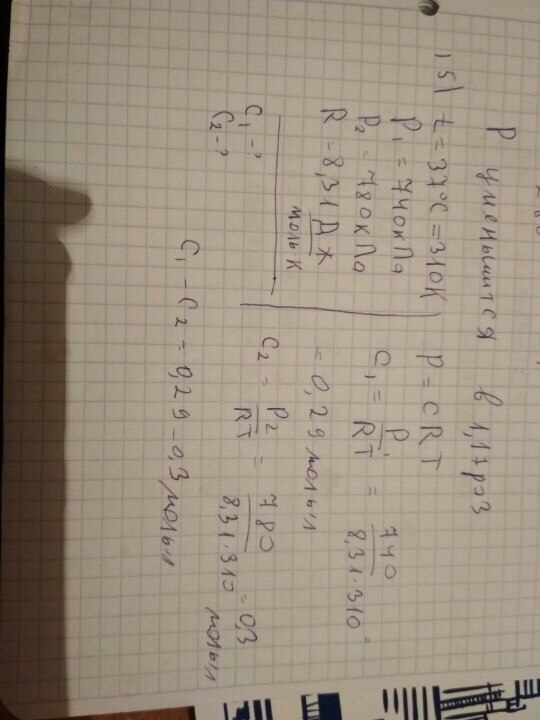 Р уменьшится в 1,17 раз
15) t = 37°C = 310K
P₁ = 740 кПа
P₂ = 780 кПа
R = 8,31 Дж/моль·К
C₁ - ?
C₂ - ?
P = CRT
C₁ = P₁/RT = 740/8,31·310 =
= 0,29 моль/л
C₂ = P₂/RT = 780/8,31·310 = 0,3 моль/л
C₁ - C₂ = 0,29 - 0,3 моль/л